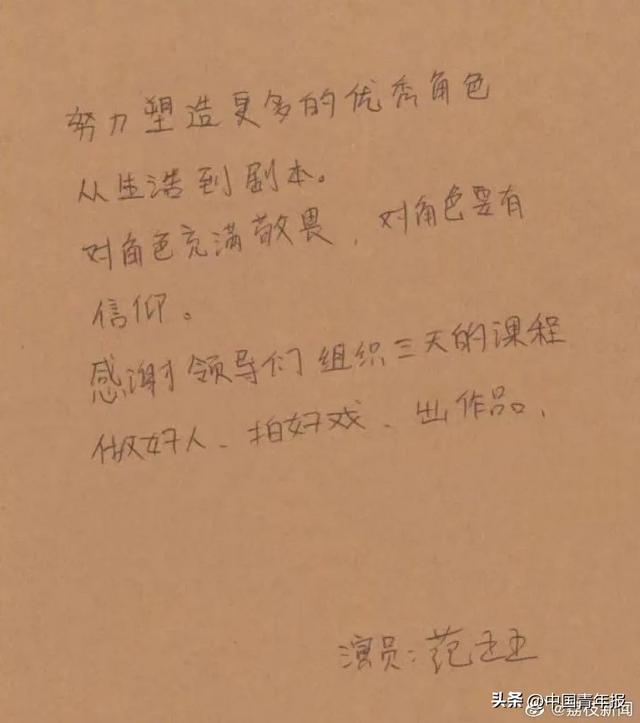 努力塑造更多的优秀角色
从生浩到剧本。
对角色充满敬畏，对角色要有
信仰。
感谢领导们组织三天的课程
做好人、拍好戏、出作品、
演员：范丞丞
头条 @中国青年报
@荔枝新闻